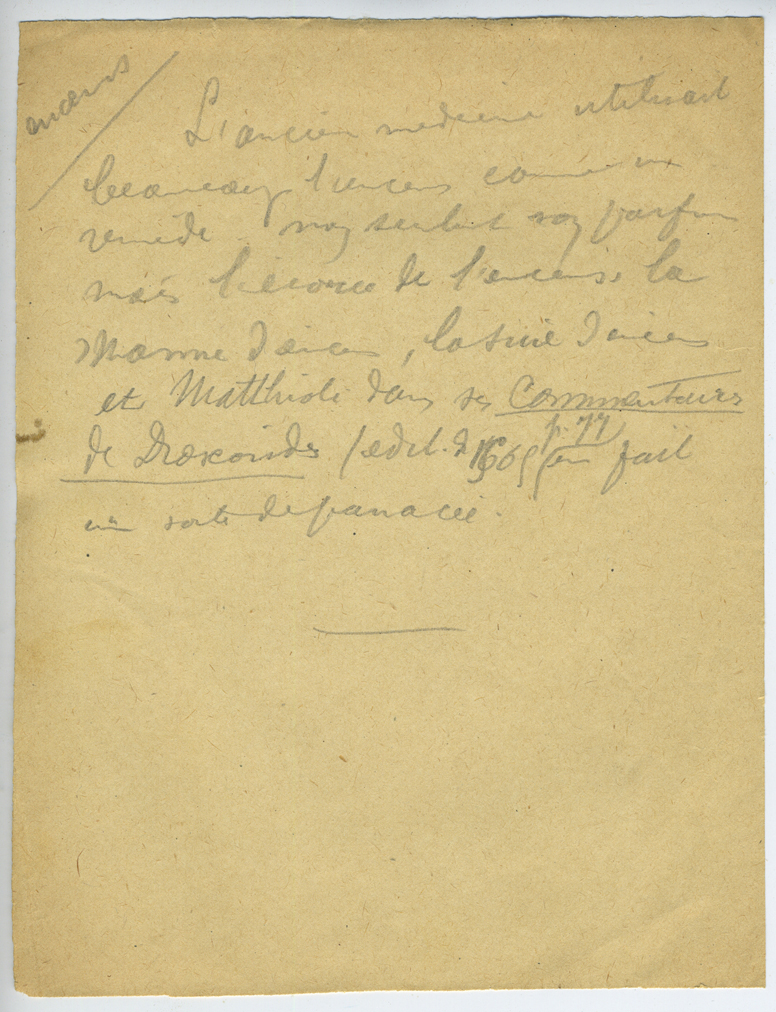 encens
L'ancien medecine utilisait
beaucoup l'encens comme un
remède non seulmt son parfum
mais l'écorce de l'encens, la
manne d'encens, la suie d'encens
et Matthiole dans ses Commentaires
de Dioscoride (edit. de 1565 p. 77) en fait
une sorte de panacée.